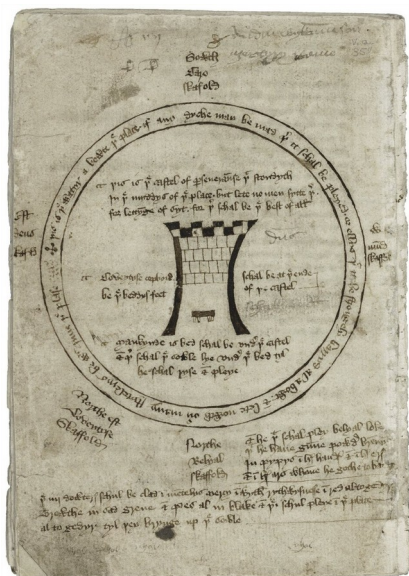 Sowth
Caro
skafold
þis is þe watyr a bowte þe place if any dyche may be mad þer it schal be pleyed or ellys þat it be strongely barryd al a bowt & lete nowth ouer many stytelerys be wyth Inne þe plase
þis is þe castel of perseueraunse þat stondyth
In þe myddys of þe place but lete no men sytte þer
for lettynge of syt for þer schal be þe best of all
Est
deus
skafold
West
mundus
skaffold
Coveytyse copbord
be þe beddys feet
schal be at þe ende
of þe castel
Mankyndeis bed schal be vndyr þe castel
& þer schal þe sowle lye vndyr þe bed tyl
he schal ryse & pleye
Northe est
Coveytyse
skaffold
Northe
Belyal
skaffold
& he þat schal pley belyal loke
þat he haue gunne powdyr brennynge
In pypys in hys handys & in hys erys
& in hys ars whanne he gothe to batayl
þe iiij dowterys schul be clad in mentelys Mercy in wyth rythwysnesse in red al togedyr
Trewthe in sad grene & Pes al in blake & þei schul pleye in þe place
al to gedyr tyl þey brynge up þe sowle